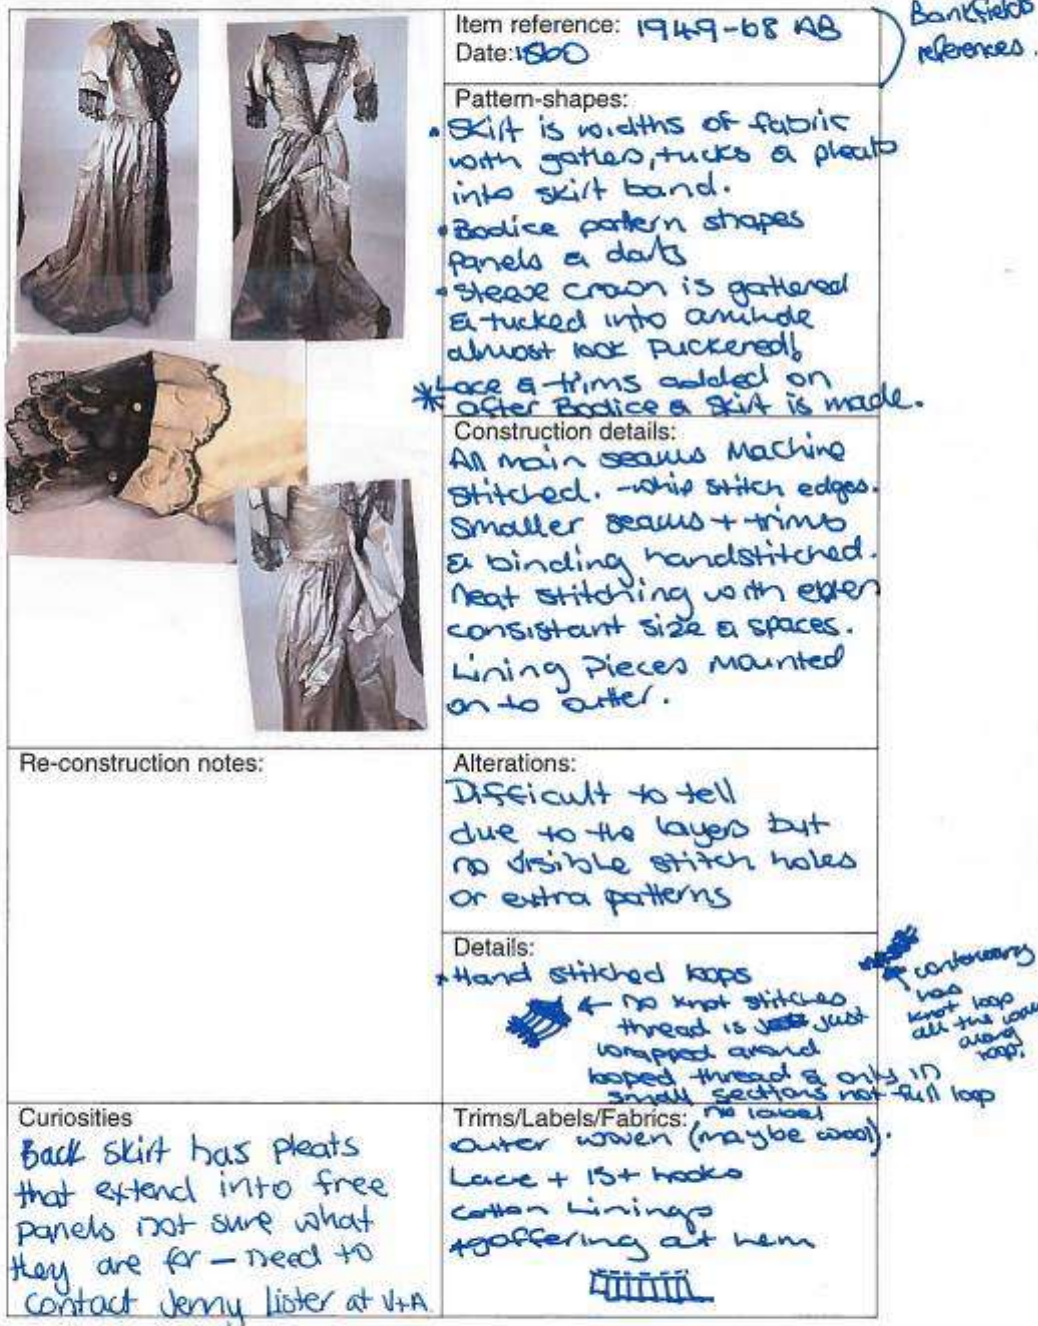 Item reference: 1949-68 AB
Date: 1860
Bankfields
references.
Pattern-shapes:
• Skirt is widths of fabric
with gathers, tucks & pleats
into skirt band.
• Bodice pattern shapes
panels & darts
• Sleeve crown is gathered
& tucked into armhole
almost look puckered!
* Lace & trims added on
after Bodice & skirt is made.
Construction details:
All main seams Machine
stitched. - whip stitch edges.
Smaller seams + trims
& binding handstitched.
Neat stitching with even
consistant size & spaces.
Lining Pieces Mounted
on to outter.
Re-construction notes:
Alterations:
Difficult to tell
due to the layers but
no visible stitch holes
or extra patterns
Details:
• Hand stitched loops
← No knot stitches
thread is just
wrapped around
looped thread & only in
small sections not full loop
has
knot loop
all the way
along
loop.
Curiosities
Back skirt has pleats
that extend into free
panels not sure what
they are for – need to
contact Jenny Lister at V+A
Trims/Labels/Fabrics: no label
outer woven (maybe wool).
Lace + 15+ hooks
cotton Linings
+goffering at hem